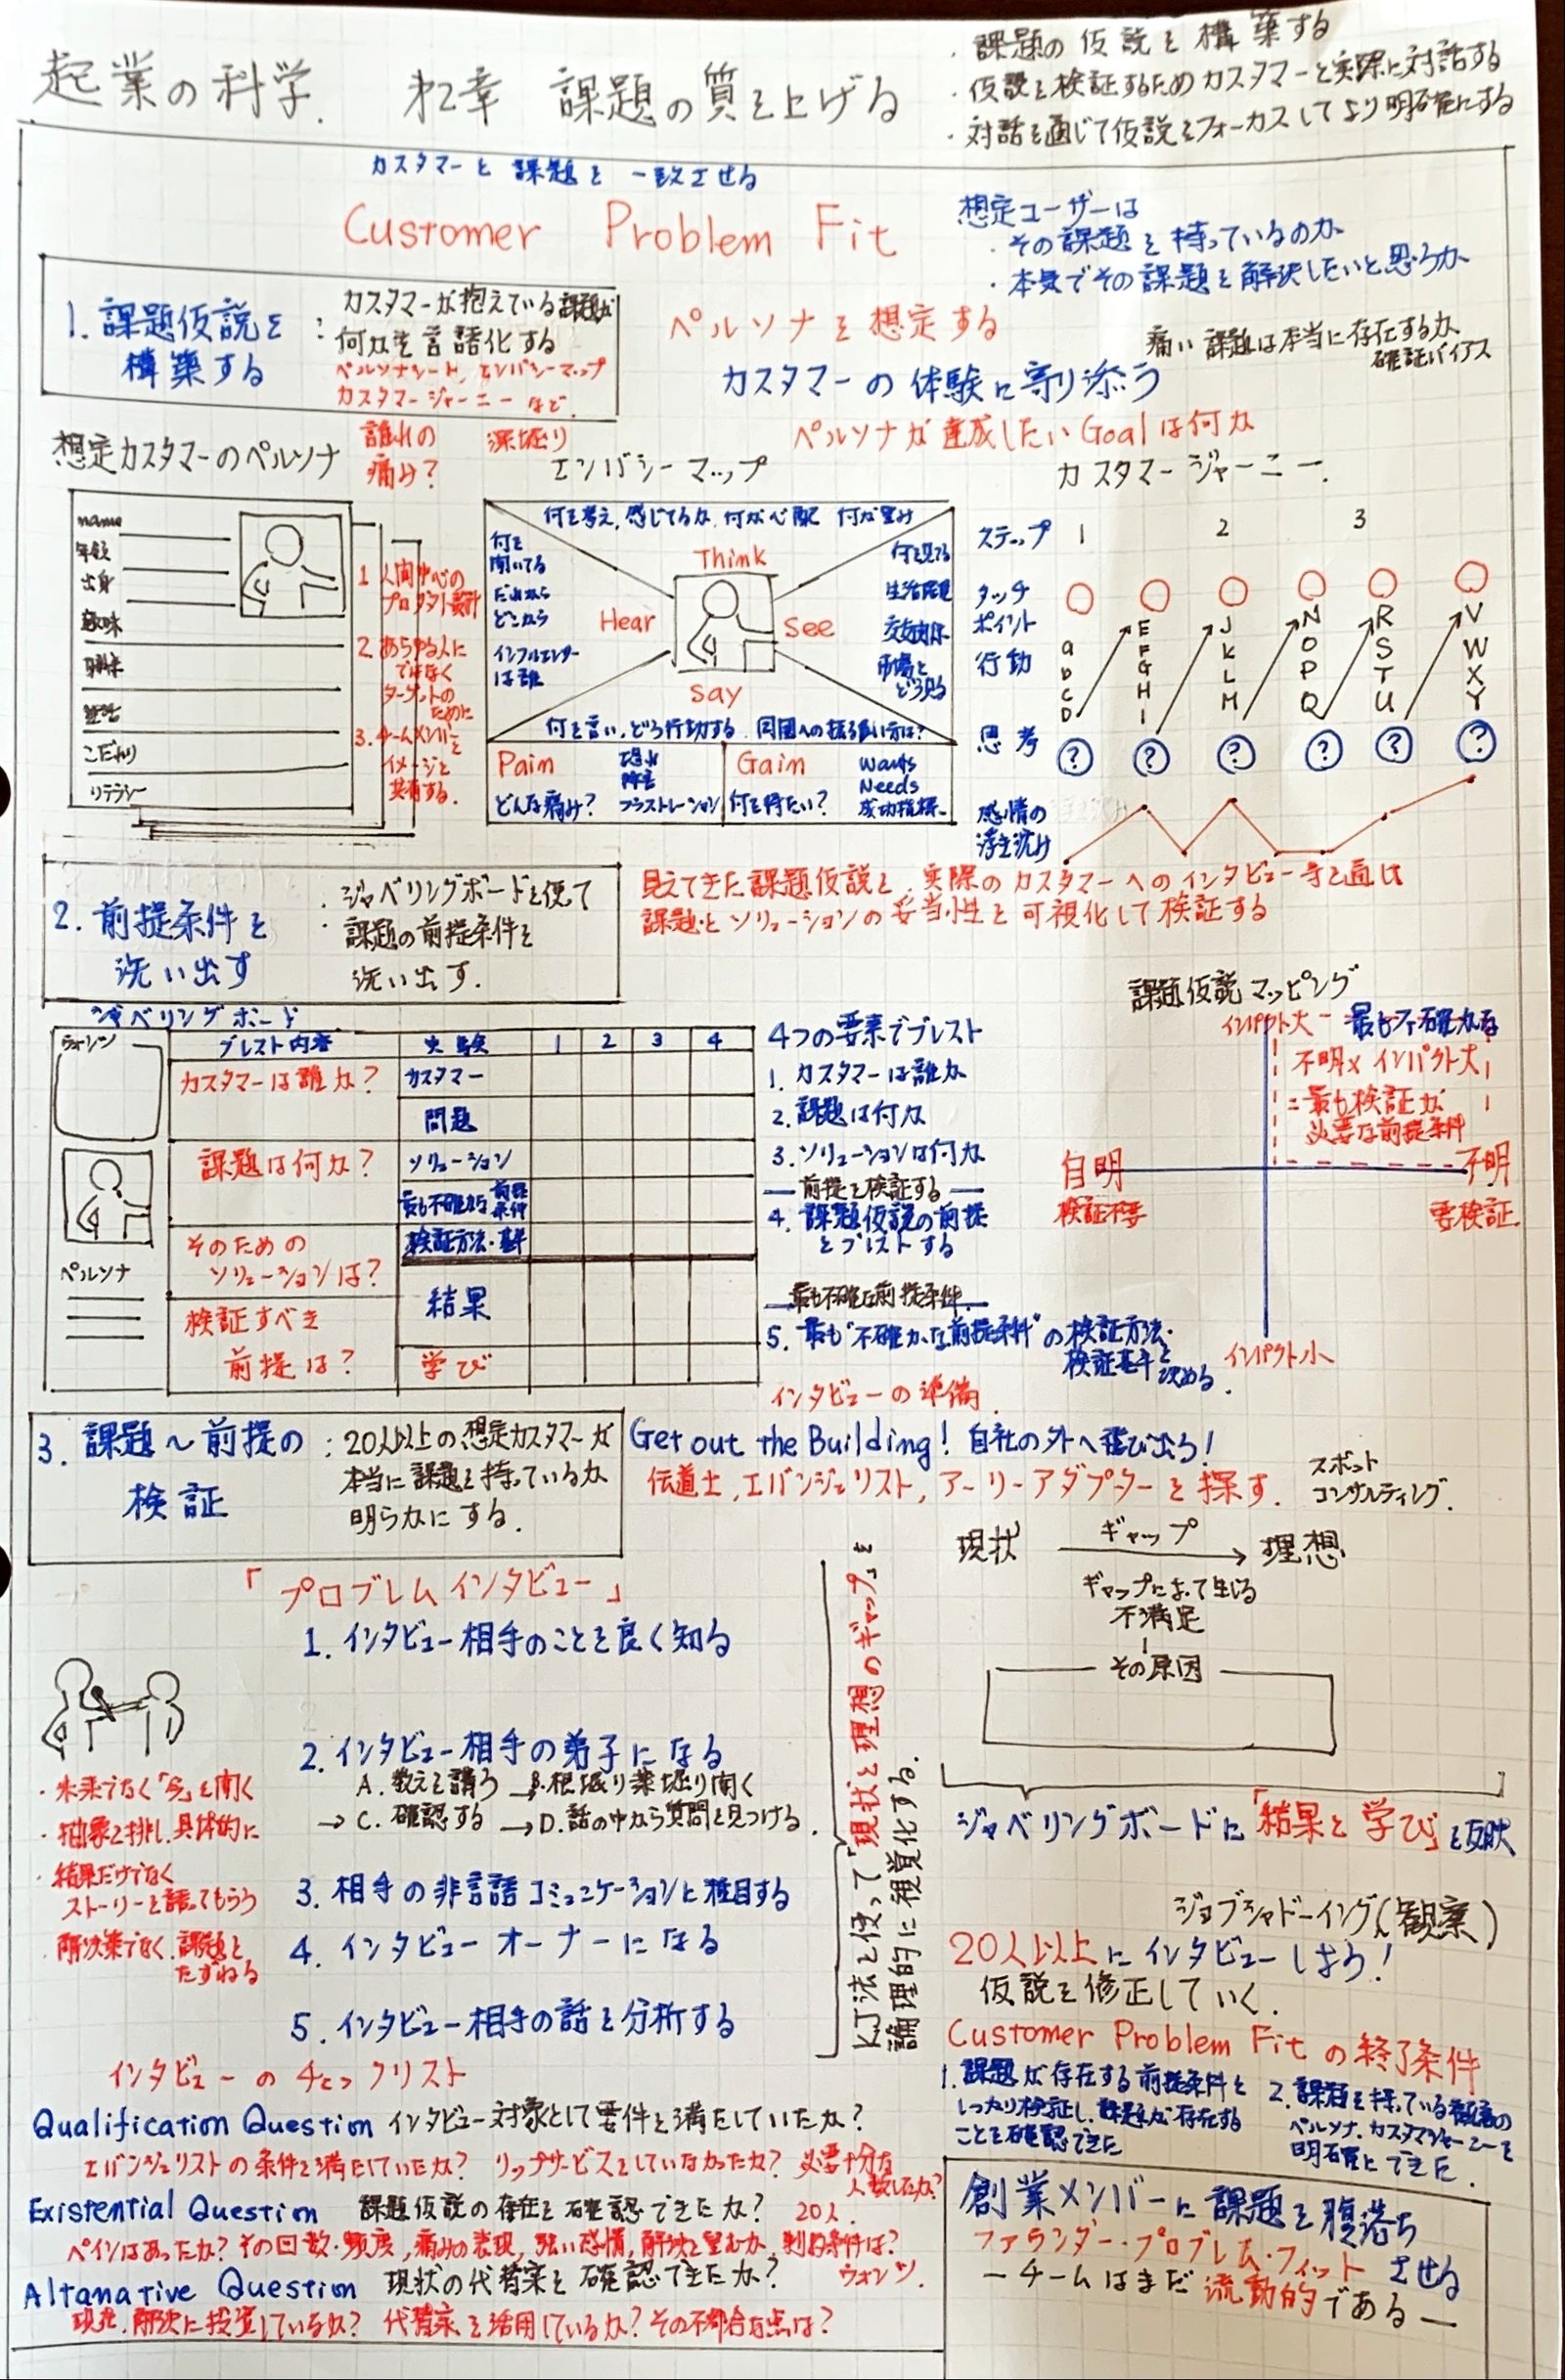 起業の科学. 第2章 課題の質を上げる
・課題の仮説を構築する
・仮説を検証するためカスタマーと実際に対話する
・対話を通じて仮説をフォーカスしてより明確にする
カスタマーと課題を一致させる
Customer Problem Fit
想定ユーザーは
・その課題を持っているのか
・本気でその課題を解決したいと思うか
1. 課題仮説を
構築する
: カスタマーが抱えている課題が
何かを言語化する
ペルソナシート, エンパシーマップ
カスタマージャーニーなど.
ペルソナを想定する
痛い課題は本当に存在するか
確証バイアス
カスタマーの体験に寄り添う
ペルソナが達成したいGoalは何か
想定カスタマーのペルソナ
誰れの
痛み?
深堀り
エンパシーマップ
カスタマージャーニー.
name
年齢
出身
趣味
こだわり
リテラシー
1 人間中心の
プロダクト設計
2. あらゆる人に
ではなく
ターゲットの
ために
3. チームメンバーと
イメージを
共有する.
何を考え, 感じてるか, 何が心配 何が望み
何を
聞いてる
だれから
どこから
インフルエンサー
は誰
Think
Hear
See
Say
何を見てる
生活環境
交友関係
市場を
どう見る
何を言い, どう行動する. 周囲への振る舞い方は?
Pain
恐れ
障害
どんな痛み? フラストレーション
Gain
Wants
Needs
何を得たい? 成功指標
ステップ 1 2 3
タッチ
ポイント
行動
a b c D
E F G H I
J K L M
N O P Q
R S T U
V W X Y
思考
? ? ? ? ? ?
感情の
浮き沈み
2. 前提条件を
洗い出す
・ジャベリングボードを使て
・課題の前提条件を
洗い出す.
見えてきた課題仮説を, 実際のカスタマーへのインタビュー等を通じ
課題とソリューションの妥当性を可視化して検証する
ジャベリングボード
ブレスト内容 実験 1 2 3 4
カスタマーは誰か?
カスタマー
問題
課題は何か?
ソリューション
最も不確かな 前提条件
検証方法・基準
そのための
ソリューションは?
ペルソナ
結果
検証すべき
前提は?
学び
4つの要素でブレスト
1. カスタマーは誰か
2. 課題は何か
3. ソリューションは何か
前提を検証する
4. 課題仮説の前提
をブレストする
最も不確な前提条件
5. 最も"不確かな前提条件"の検証方法・
検証基準を
決める.
課題仮説マッピング
インパクト大 最も不確かな
不明×インパクト大
=最も検証が
必要な前提条件
自明
不明
検証不要
要検証
インパクト小
インタビューの準備
3. 課題~前提の
検証
: 20人以上の想定カスタマーが
本当に課題を持っているか
明らかにする.
Get out the Building! 自社の外へ飛び出ろ!
伝道士, エバンジェリスト, アーリーアダプターを探す.
スポット
コンサルティング.
「プロブレムインタビュー」
1. インタビュー相手のことを良く知る
2. インタビュー相手の弟子になる
A. 教えを請う → B. 根堀り葉堀り聞く
→ C. 確認する → D. 話の中から質問を見つける.
3. 相手の非言語コミュニケーションに着目する
4. インタビューオーナーになる
5. インタビュー相手の話を分析する
・未来でなく「今」を聞く
・抽象を排し, 具体的に
・結果だけでなく
ストーリーを語ってもらう
・解決策でなく, 課題を
たずねる
KJ法を使って「現状と理想のギャップ」を
論理的に視覚化する.
現状 ギャップ 理想
ギャップによって生じる
不満足
その原因
ジャベリングボードに「結果と学び」を反映
ジョブシャドーイング(観察)
20人以上にインタビューしよう!
仮説を修正していく.
Customer Problem Fitの終了条件
1. 課題が存在する前提条件を
しっかり検証し, 課題が存在する
ことを確認できた
2. 課題を持っている
ペルソナ, カスタマージャーニーを
明確にできた.
インタビューのチェックリスト
Qualification Question インタビュー対象として要件を満たしていたか?
エバンジェリストの条件を満たしていたか? リップサービスをしていなかったか? 必要十分な
人数したか?
Existential Question 課題仮説の存在を確認できたか? 20人.
ペインはあったか? その回数・頻度, 痛みの表現, 強い感情, 解決を望むか 制約条件は?
Altanative Question 現状の代替案を確認できたか? ウォンツ.
現在, 解決に投資しているか? 代替案を活用しているか? その不都合な点は?
創業メンバーに課題を腹落ち
ファウンダー・プロブレム・フィット させる
ーチームはまだ流動的であるー